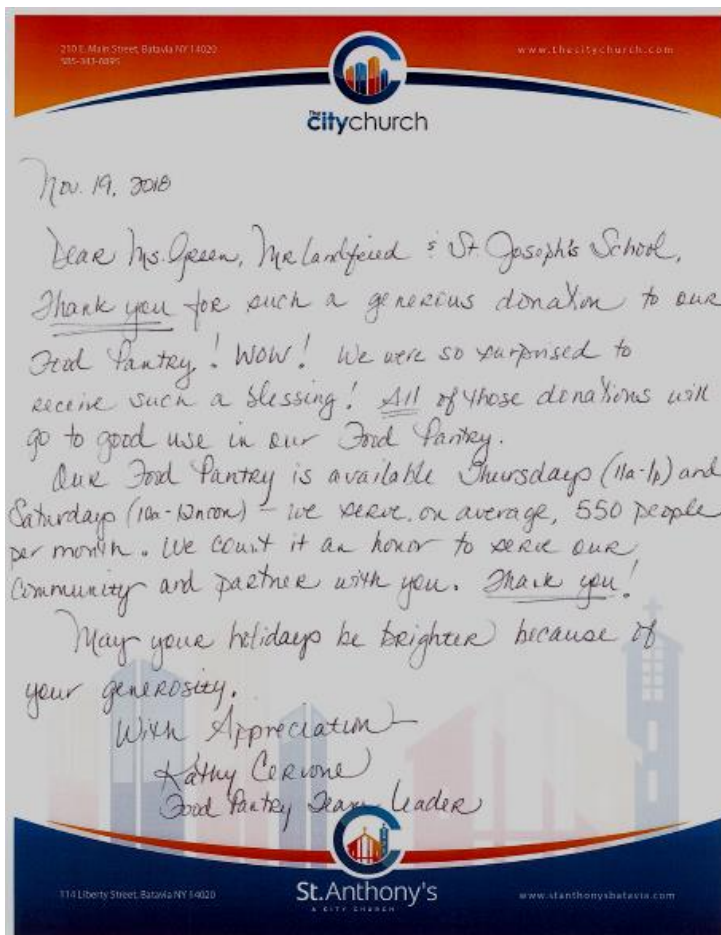 210 E. Main Street, Batavia NY 14020
585-343-6895
www.thecitychurch.com
The
citychurch
Nov. 19, 2018
Dear Ms. Green, Mr Landfried & St. Joseph's School,
Thank you for such a generous donation to our
Food Pantry! WOW! We were so surprised to
receive such a blessing! All of those donations will
go to good use in our Food Pantry.
Our Food Pantry is available Thursdays (11a-1p) and
Saturdays (10a-12noon) – we serve, on average, 550 people
per month. We count it an honor to serve our
Community and partner with you. Thank you!
May your holidays be brighter because of
your generosity.
With Appreciation –
Kathy Cervone
Food Pantry Team Leader
114 Liberty Street, Batavia NY 14020
St.Anthony's
A CITY CHURCH
www.stanthonysbatavia.com